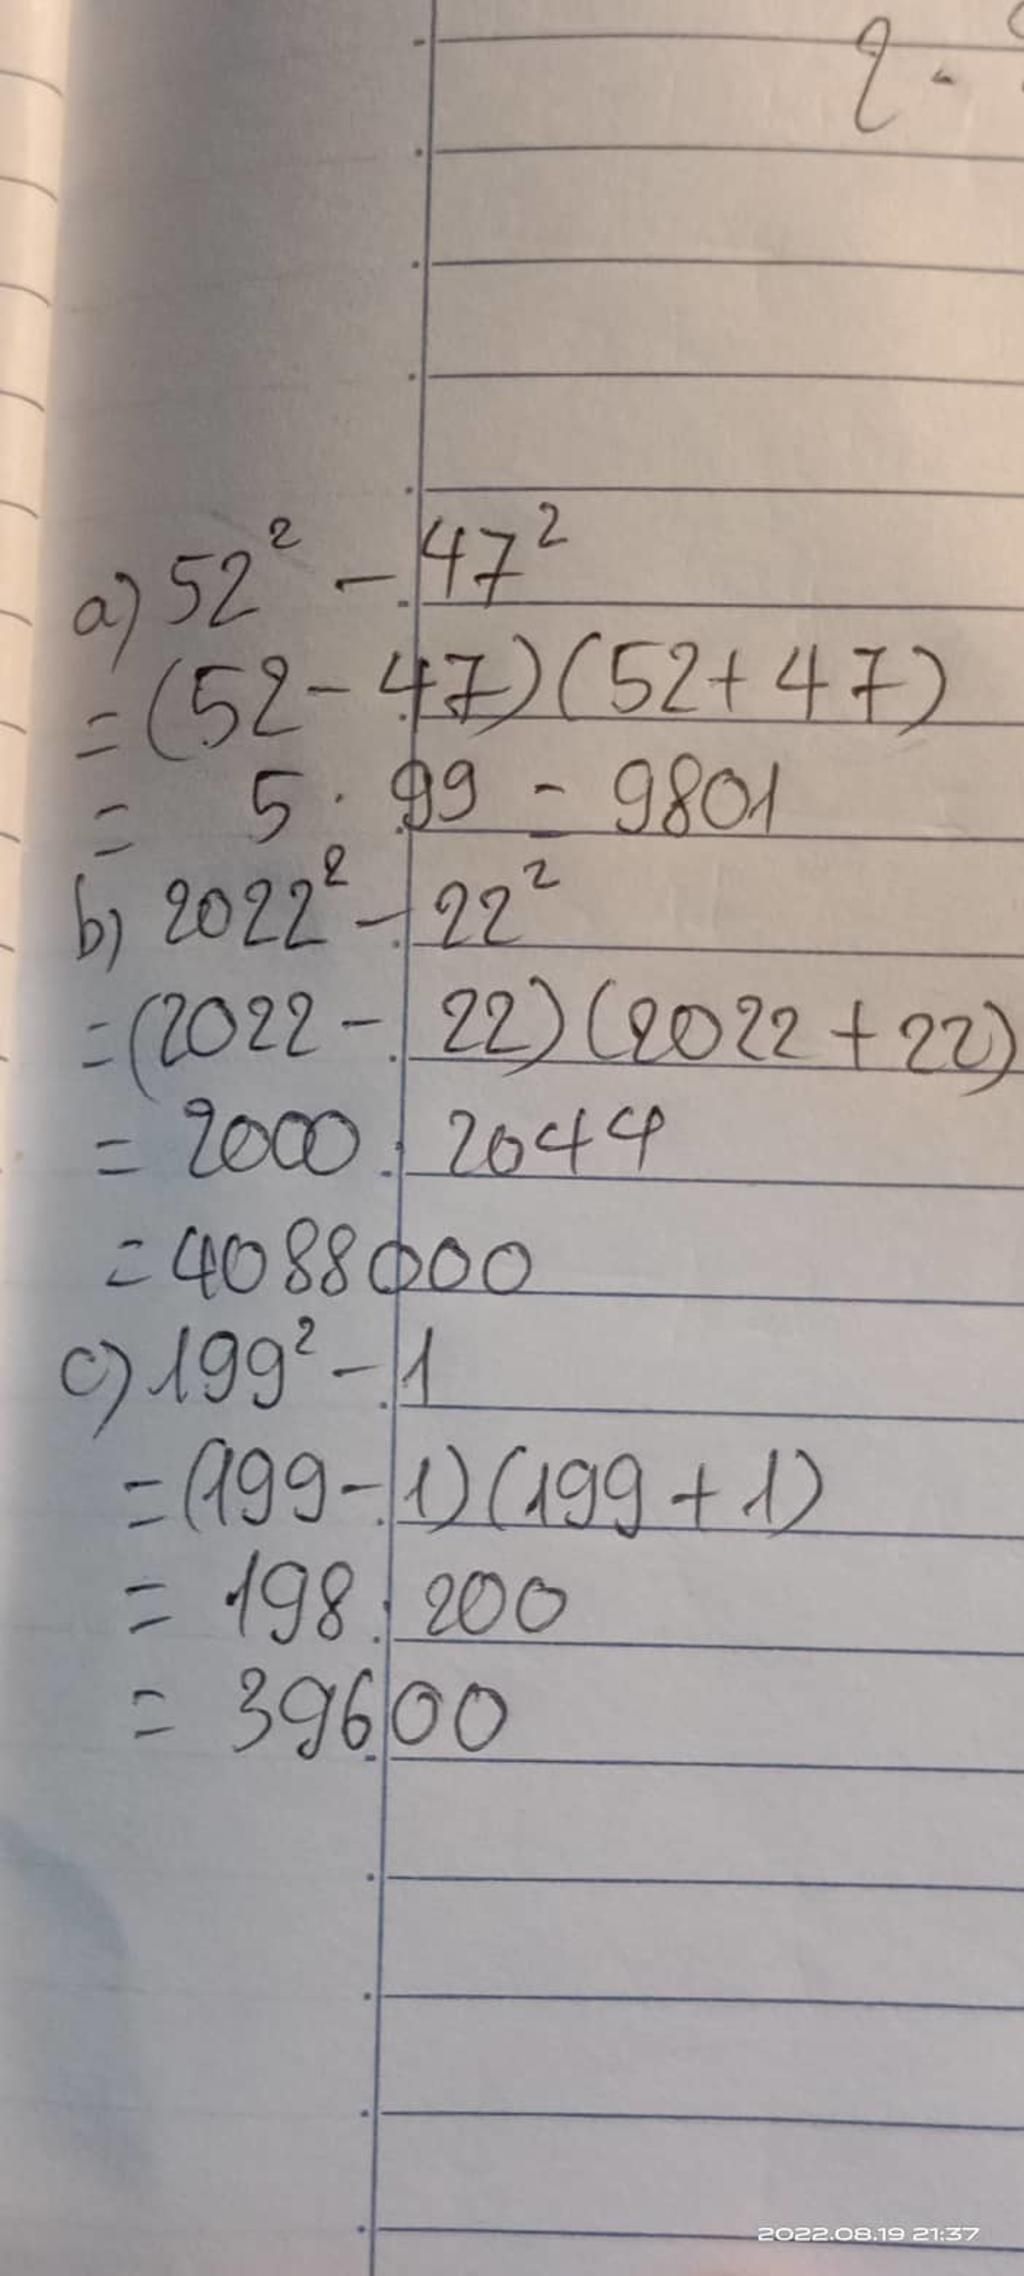 a) 52² - 47²
= (52 - 47)(52 + 47)
= 5 . 99 = 9801
b) 2022² - 22²
= (2022 - 22)(2022 + 22)
= 2000 . 2044
= 4088000
c) 199² - 1
= (199 - 1)(199 + 1)
= 198 . 200
= 39600
2022.08.19 21:37